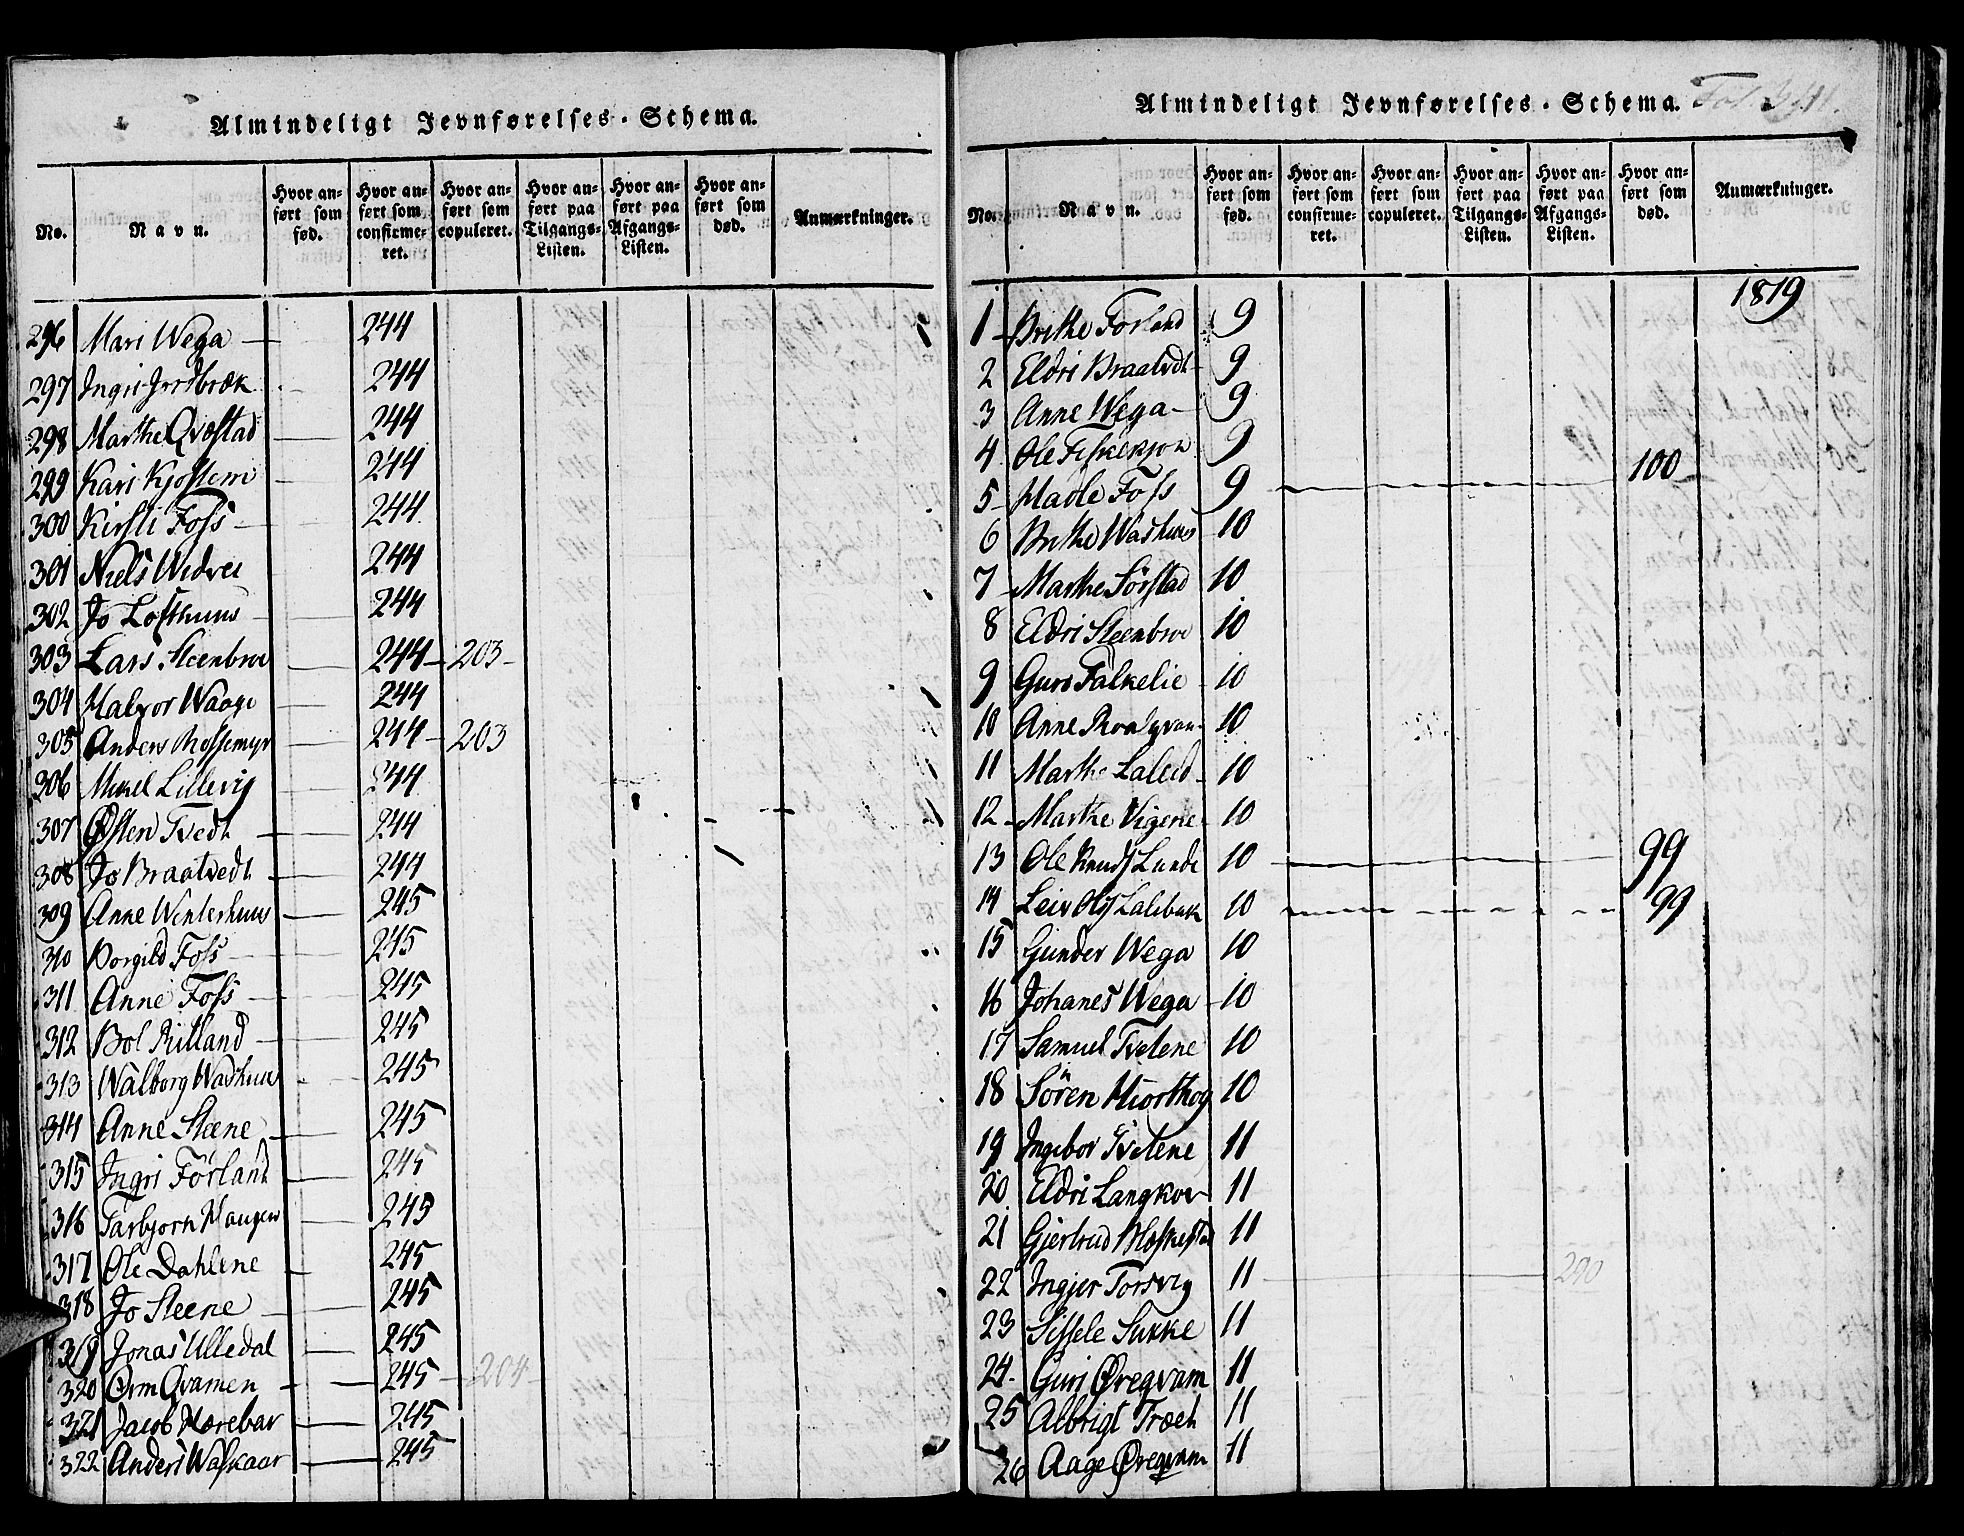 Almindeligt Jevnførelses-Schema.
No. Navn. Hvor anført som fød. Hvor anført som confirmeret. Hvor anført som copuleret. Hvor anført paa Tilgangs-Listen. Hvor anført paa Afgangs-Listen. Hvor anført som død. Anmærkninger.
296 Mari Wega 244
297 Ingri 244
298 Marthe Qvæstad 244
299 Kari 244
300 Kirsti Foss 244
301 Niels 244
302 Jo Lofthuus 244
303 Lars Steenbroe 244 203
304 Halvor Waage 244
305 Anders 244 203
306 Mikel Lillevig 244
307 Østen Tvedt 244
308 Jo Braatvedt 244
309 Anne Winterhuus 245
310 Borgild Foss 245
311 Anne Foss 245
312 Bol 245
313 Walborg Washuus 245
314 Anne Steene 245
315 Ingri Førland 245
316 Tarbjorn Haugen 245
317 Ole Dahlene 245
318 Jo Steene 245
319 Jonas Ulledal 245
320 Orm Qvamen 245 204
321 Jacob 245
322 Anders Waskaar 245
Almindeligt Jevnførelses-Schema. Fol.
No. Navn. Hvor anført som fød. Hvor anført som confirmeret. Hvor anført som copuleret. Hvor anført paa Tilgangs-Listen. Hvor anført paa Afgangs-Listen. Hvor anført som død. Anmærkninger.
1819
1 Brithe Førland 9
2 Eldri Braatvedt 9
3 Anne Wega 9
4 Ole 9
5 Madle Foss 9 100
6 Brithe Washuus 10
7 Marthe Sørstad 10
8 Eldri Steenbroe 10
9 Guro Falkelie 10
10 Anne 10
11 Marthe 10
12 Marthe Vigene 10
13 Ole Knuds Lunde 10 99
14 Leiv Ols 10 99
15 Gunder Wega 10
16 Johanes Wega 10
17 Samuel Tvetene 10
18 Søren Hiorthog 10
19 Ingebor Tvetene 11
20 Eldri 11
21 Gjertrud 11
22 Ingjer Torsvig 11 290
23 Sissele Sukke 11
24 Guri Øregvam 11
25 Albrigt Træet 11
26 Aage Øregvam 11